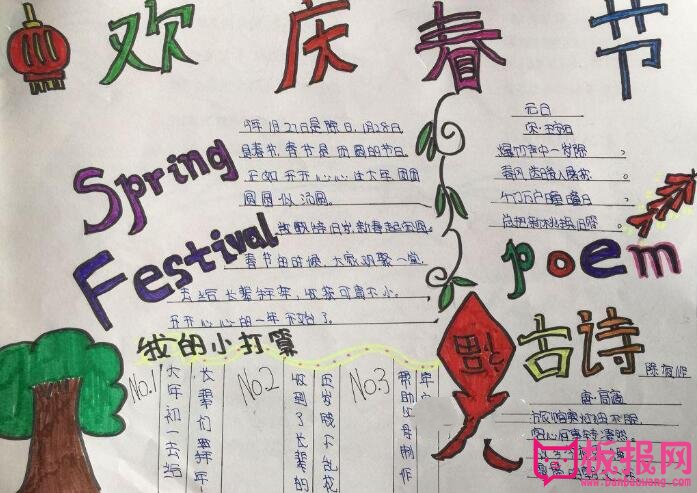 欢庆春节
Spring
Festival
今年1月27日是除夕,1月28日
是春节,春节是团圆的节日
开开心心过大年,团团
圆圆似汤圆。
春节的时候,大家欢聚一堂,
去给长辈拜年,收获可真不小。
开开心心的一年开始了。
元日
宋·王安石
爆竹声中一岁除
春风送暖入屠苏
千门万户曈曈日
总把新桃换旧符
poem
福
古诗
除夜作
唐·高适
我的小打算
No.1
大年初一去给
长辈们拜年
No.2
收到了长辈的
压岁钱不乱花
No.3
帮助父母制作
板报网
www.banbaowang.com